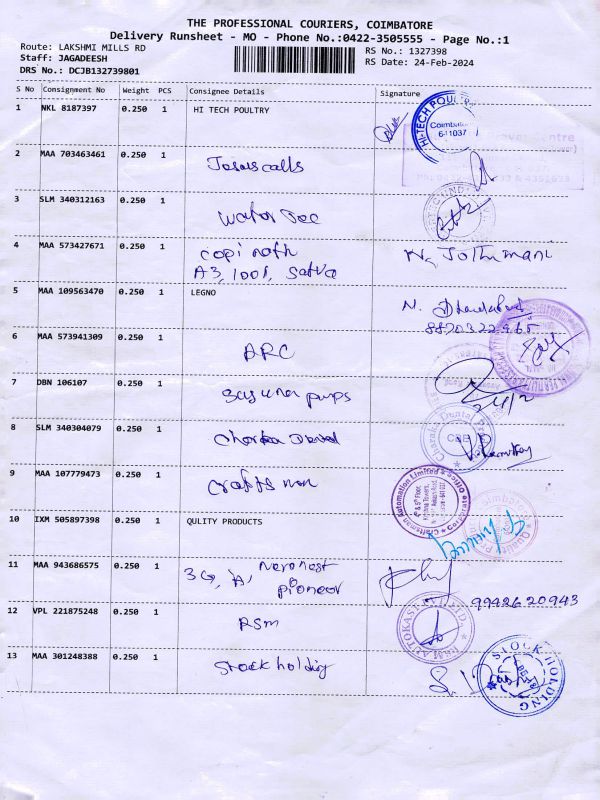 THE PROFESSIONAL COURIERS, COIMBATORE
Delivery Runsheet - MO - Phone No.:0422-3505555 - Page No.:1
Route: LAKSHMI MILLS RD
Staff: JAGADEESH
DRS No.: DCJB132739801
RS No.: 1327398
RS Date: 24-Feb-2024
S No Consignment No Weight PCS Consignee Details Signature
1 NKL 8187397 0.250 1 HI TECH POULTRY
HI-TECH POUL
Coimbat
6411037
2 MAA 703463461 0.250 1
3 SLM 340312163 0.250 1 Water Tec
4 MAA 573427671 0.250 1 Copi nath
A3, 1001, Satva
N. Jothimani
5 MAA 109563470 0.250 1 LEGNO
N.
8870322965
6 MAA 573941309 0.250 1 ARC
7 DBN 106107 0.250 1
24/2
8 SLM 340304079 0.250 1
CBE
9 MAA 107779473 0.250 1 Crafts man
Craftsman Automation Limited
Corporate Office
10 IXM 505897398 0.250 1 QULITY PRODUCTS
11 MAA 943686575 0.250 1 3G, A,
pioneer
9942620943
12 VPL 221875248 0.250 1 RSM
13 MAA 301248388 0.250 1 Stock holding
STOCK HOLDING